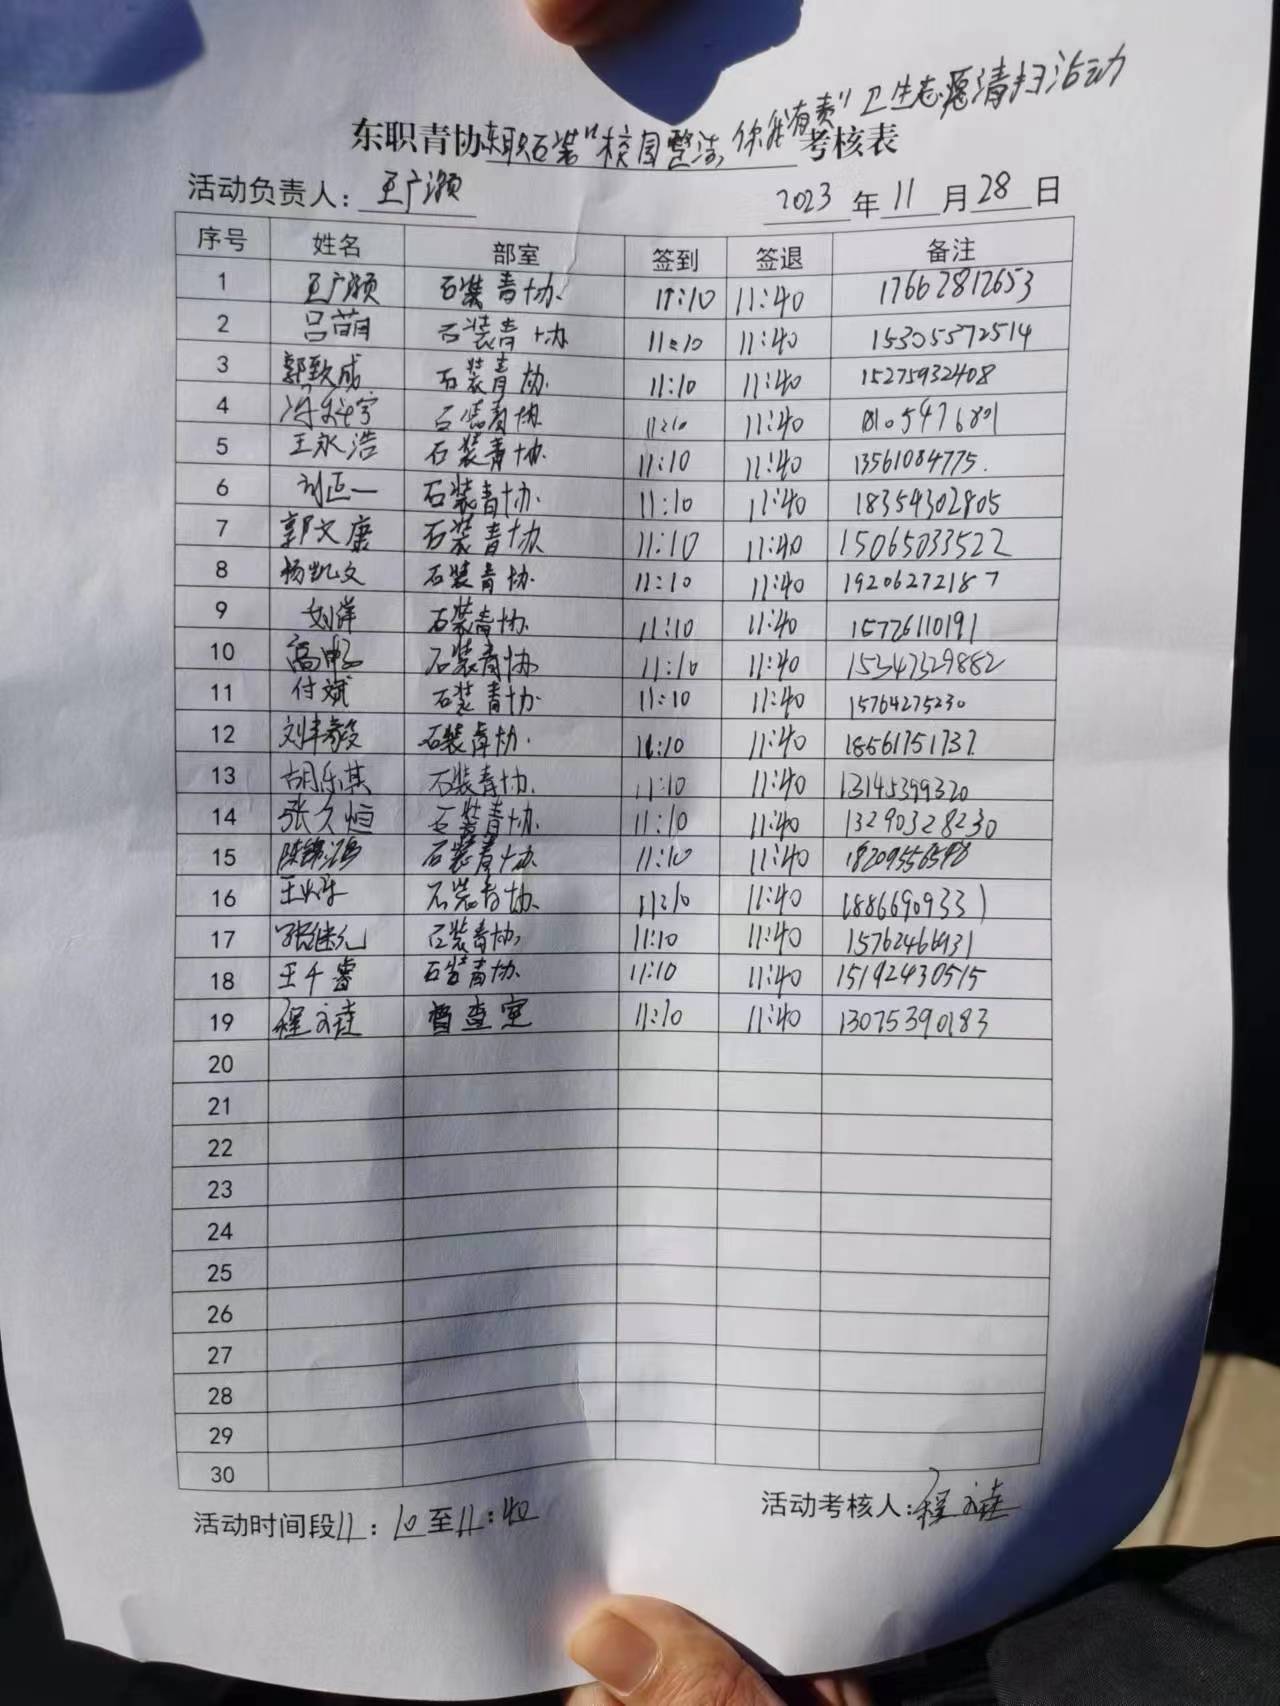 东职青协东职石装"校园整洁,你我有责"卫生志愿清扫活动考核表
活动负责人:王广灏 2023年11月28日
序号 姓名 部室 签到 签退 备注
1 王广灏 石装青协 11:10 11:40 17662812653
2 吕萌 石装青协 11:10 11:40 15305372514
3 郭致成 石装青协 11:10 11:40 15275932408
4 石装青协 11:10 11:40 18105476801
5 王永浩 石装青协 11:10 11:40 13561084775
6 刘正一 石装青协 11:10 11:40 18354302805
7 郭文康 石装青协 11:10 11:40 15065033522
8 杨凯文 石装青协 11:10 11:40 19206272187
9 刘洋 石装青协 11:10 11:40 15726110191
10 石装青协 11:10 11:40 15347329882
11 付斌 石装青协 11:10 11:40 15764275230
12 刘丰毅 石装青协 11:10 11:40 18561751737
13 胡乐其 石装青协 11:10 11:40 13145399320
14 张久恒 石装青协 11:10 11:40 13290328230
15 石装青协 11:10 11:40 18209556598
16 石装青协 11:10 11:40 18866909331
17 张继元 石装青协 11:10 11:40 15762466931
18 王千睿 石装青协 11:10 11:40 15192430515
19 督查室 11:10 11:40 13075390183
20
21
22
23
24
25
26
27
28
29
30
活动时间段11:10至11:40 活动考核人: